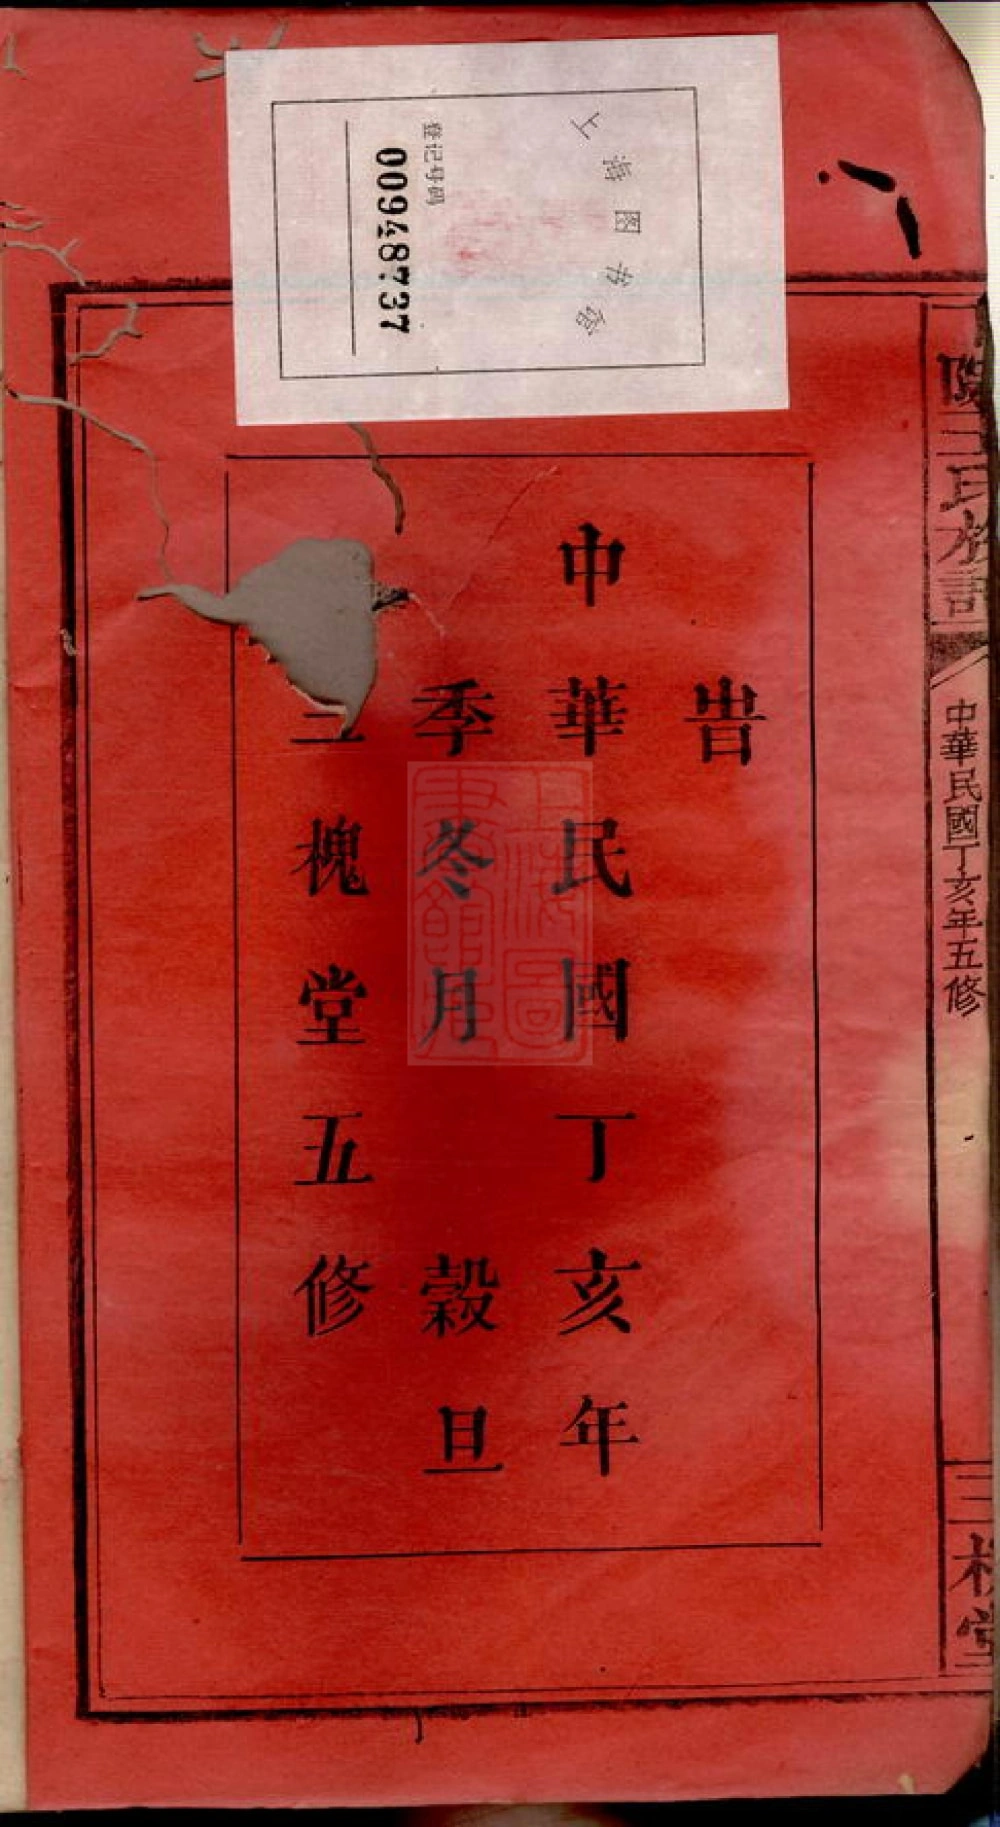 上海图书馆
登记号码
00948737
旹
中華民國丁亥年
季冬月穀旦
三槐堂五修
氏
中華民國丁亥年五修
三槐堂